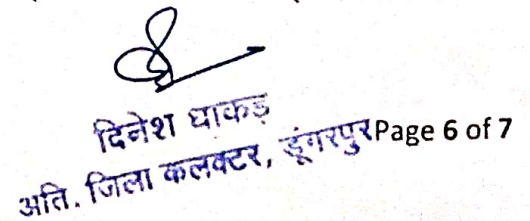 दिनेश धाकड़
अति. जिला कलक्टर, डूंगरपुर
Page 6 of 7